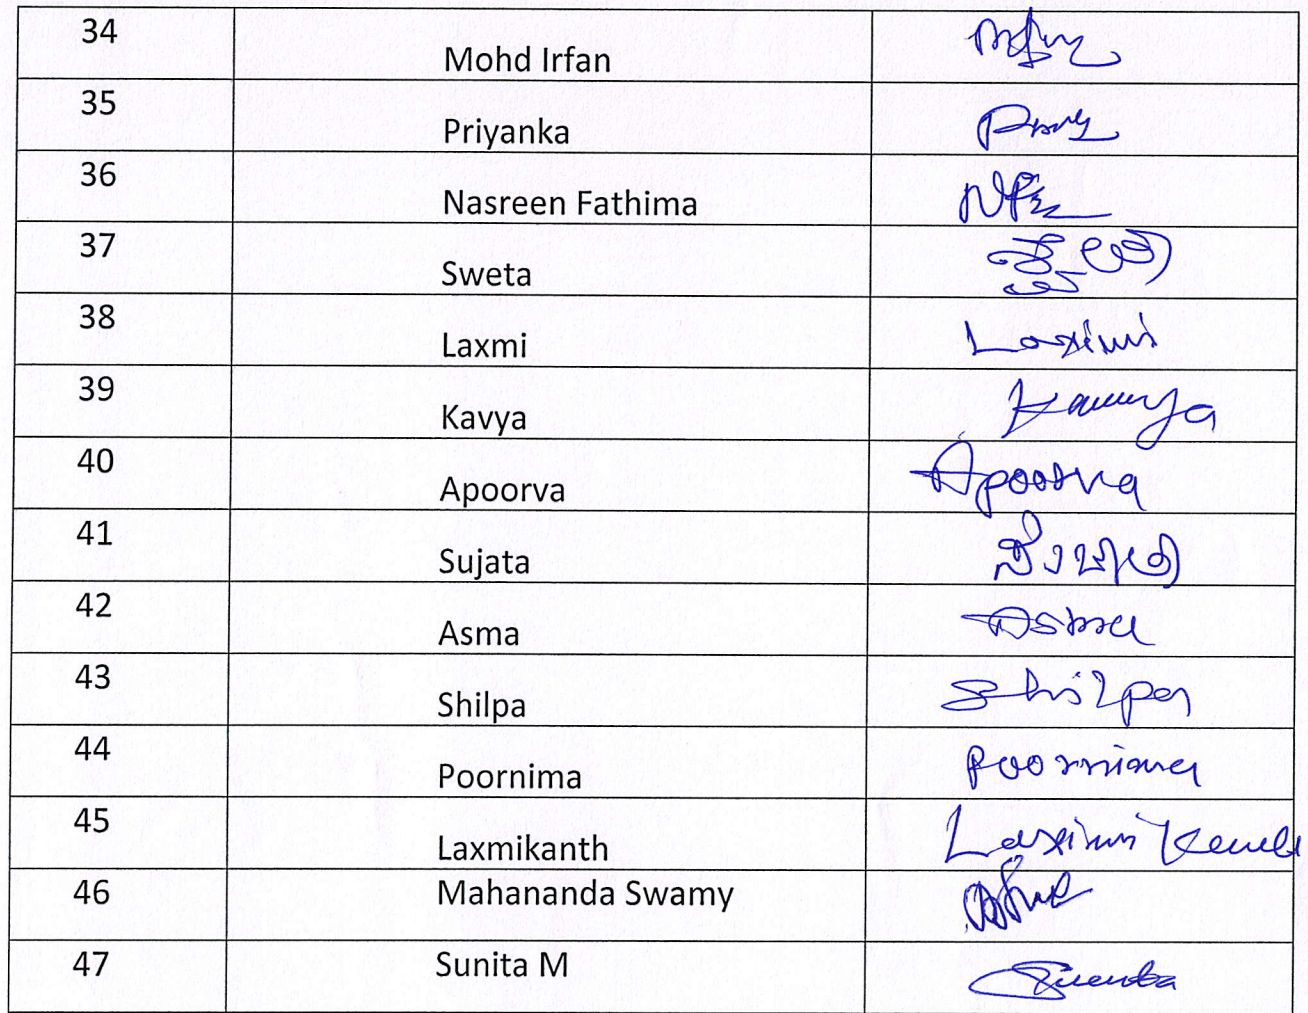 34 Mohd Irfan
35 Priyanka
36 Nasreen Fathima
37 Sweta
38 Laxmi Laxmi
39 Kavya
40 Apoorva Apoorva
41 Sujata
42 Asma Asma
43 Shilpa Shilpa
44 Poornima Poornima
45 Laxmikanth
46 Mahananda Swamy
47 Sunita M